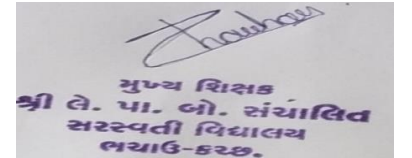 Chauhan
મુખ્ય શિક્ષક
શ્રી લે. પા. બો. સંચાલિત
સરસ્વતી વિદ્યાલય
ભચાઉ-કચ્છ.